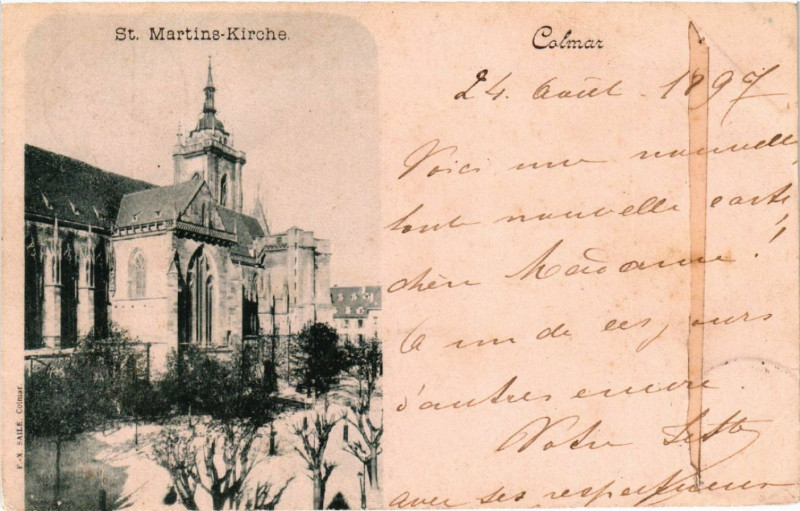 St. Martins-Kirche.
Colmar
24. Août. 1897
Voici une nouvelle,
toute nouvelle carte
chère Madame!
A un de ces jours
d'autres encore.
Votre
avec ses respectueux
F.-X. SAILE, Colmar.